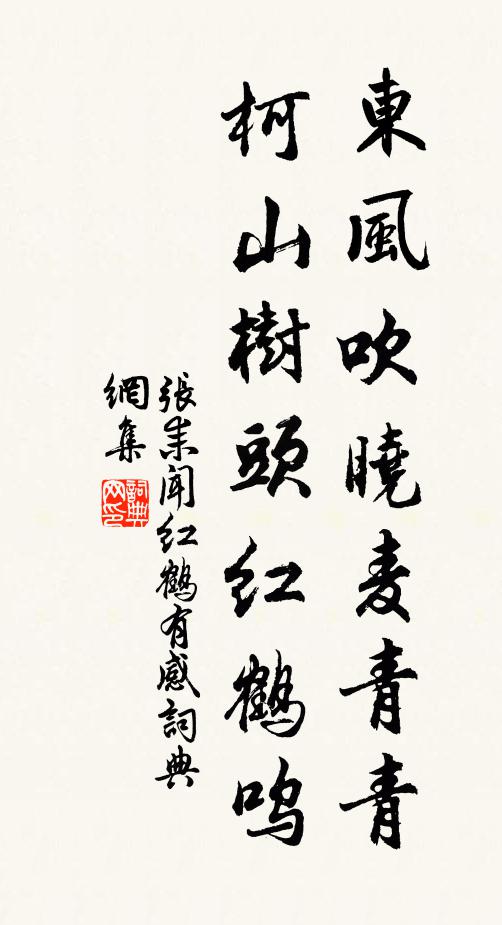 東風吹曉麦青青
柯山樹頭红鶴鸣
張耒聞红鶴有感詞典
網集
詞典
网印